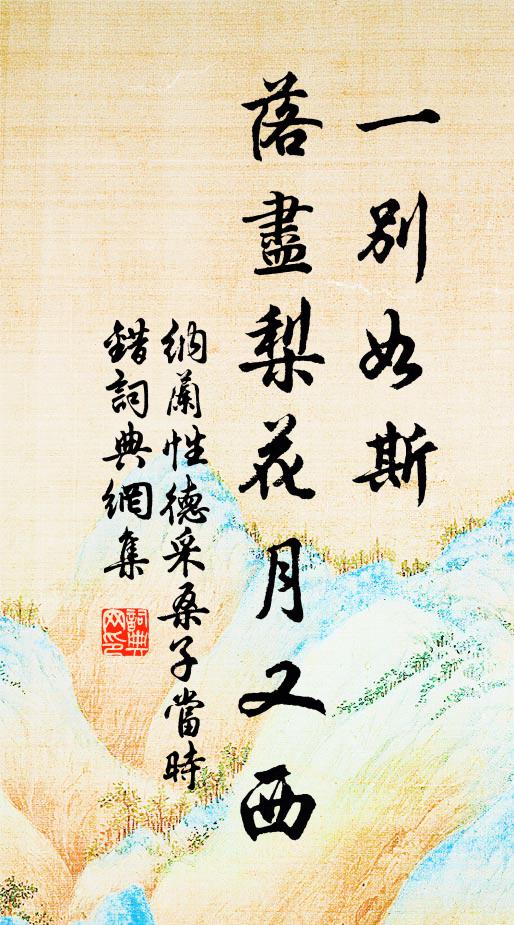 一別如斯
落盡梨花月又西
納蘭性德采桑子當時
錯詞典網集
詞典
网印